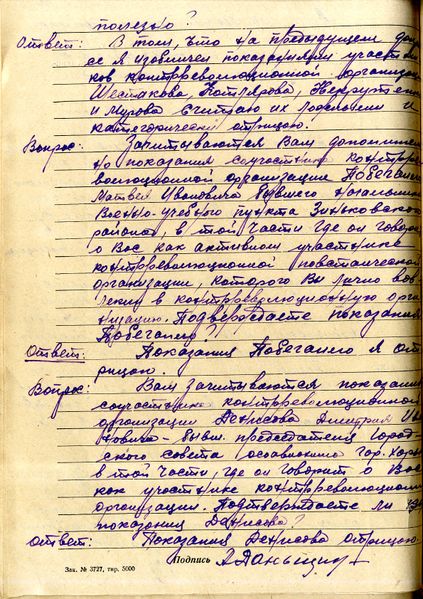 полезно?
Ответ: В том, что на предыдущем допро
се я изобличен показаниями участни
ков контрреволюционной организации
Шестакова, Котлярова,
и Мурова считаю их ложными и
категорически отрицаю.
Вопрос: Зачитываются Вам дополнитель
но показания соучастника контрре
волюционной организации Побегаенко
Матвея Ивановича бывшего начальника
Военно-учебного пункта Зиньковского
района, в той части где он говорит
о Вас как активном участнике
контрреволюционной повстанческой
организации, которого Вы лично вов
лекли в контрреволюционную орга
низацию. Подтверждаете показания
Побегаенко?
Ответ: Показания Побегаенко я от
рицаю.
Вопрос: Вам зачитываются показания
соучастника контрреволюционной
организации Денисова Дмитрия Ива
новича – бывш. председателя Город
ского совета Осоавиахима гор. Харь
в той части, где он говорит о Вас
как участнике контрреволюцион
организации. Подтверждаете ли Вы
показания Денисова?
Ответ: Показания Денисова отрицаю.
Подпись
Зак. № 3727, тир. 5000